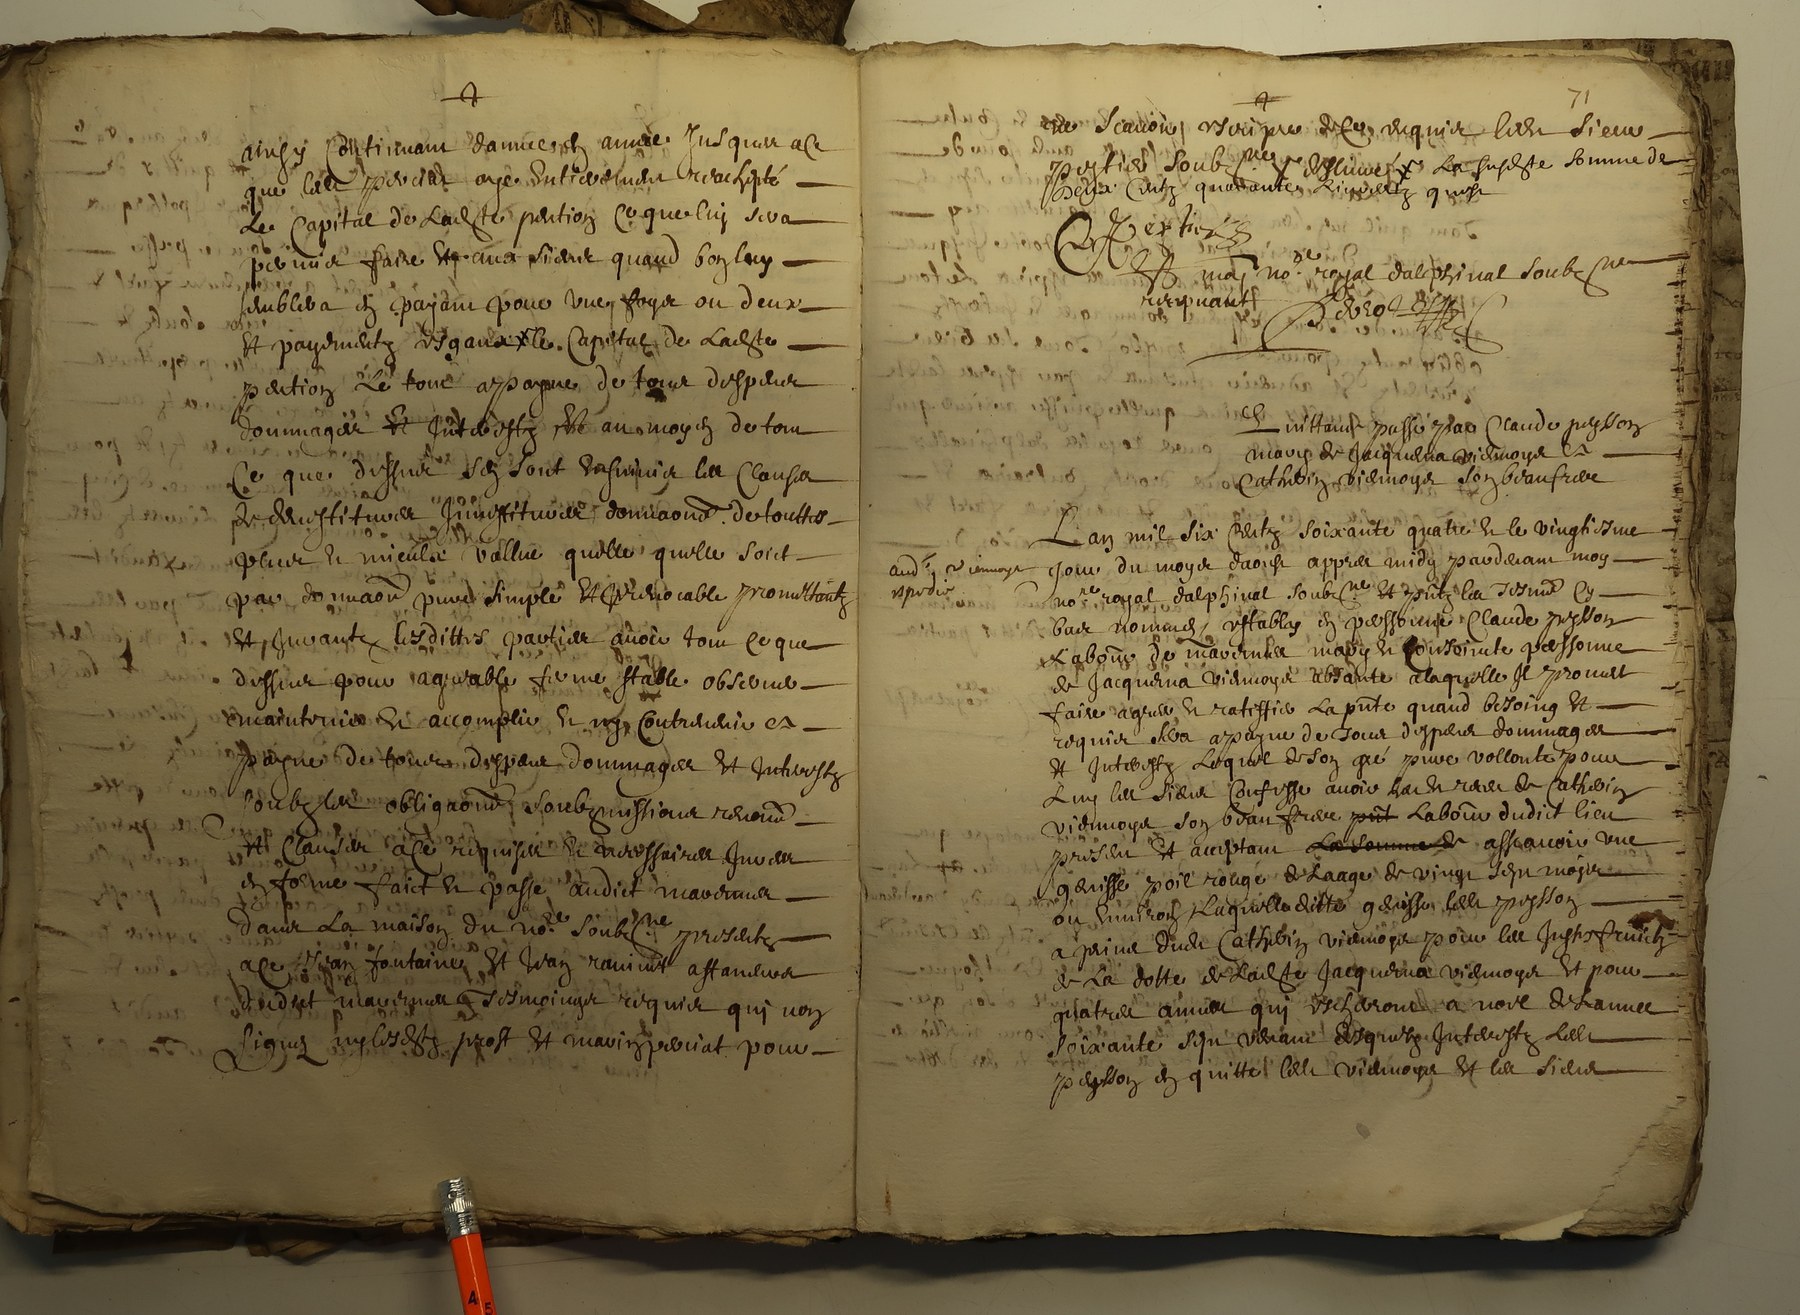 ainsy continuant dannee en annee Jusques a ce
que led perciat aye entierement rachepté
Le Capital de Ladte pention Ce que luy sera
permis faire et aux siens quand bon luy
semblera en payant pour une foys ou deux
et payementz esgaux le Capital de Ladte
pention Le tout a payne de tous despens
dommages et Interestz et au moyen de tout
Ce que dessus sen sont les Clauses
de devestitures Jnvestitures donnaons de touttes
plus et mieulx vallue quelle quelle soict
par donnaon pure simple et Irrevocable promettantz
et Jurantz lesdittes parties avoir tout ce que
dessus pour agreable ferme stable observer
maintenir et accomplir et ny Contrevenir a
payne de tous despens dommages et Interestz
soubz les obligaons soubzmissions renonons
et Clauses a ce requises et necessaires Jurees
en forme faict et passé audict
dans La maison du nore soubzne presentz
a ce Jean fontaine et Jean
dudict tesmoings requis qui non
signez ny lesdtz prost et perciat pour
71
ne scavoir escripre de ce requis led sieur
soubzne La susdte somme de
deux Centz quarante
Et moy nore royal dalphinal soubzne
requerant
quittance passé par Claude peysson
mary de Jacquema viennoys a
Catherin viennoys son beaufrere
Lan mil six Centz soixante quatre et le vingtiesme
jour du moys daoust appres midy pardevant moy
aud viennoys
expedie
nore royal dalphinal soubzne et pntz les tesmns cy
bas nommes estably en personne Claude peysson
Labour de mary et Conjoincte personne
de Jacquema viennoys absante a laquelle Il promet
faire agreer et ratiffier La pnte quand besoing et
requis sera a payne de tous despens dommages
et Interestz Lequel de son gré pure vollonté pour
Luy les siens Confesse avoir heu et receu de Catherin
viennoys son beau frere pnt Labour dudict lieu
present et acceptant La somme de assavoir une
genisse poil rouge de Laage de vingt sept moys
ou environ Laquelle ditte genisse led peysson
a prins dudt Catherin viennoys pour les Jusfruictz
de La dotte de Ladte Jacquema viennoys et pour
quatres annees qui escherront a noel de Lannee
soixante sept venant desquelz Interestz led
peysson en quitte led viennoys et les siens